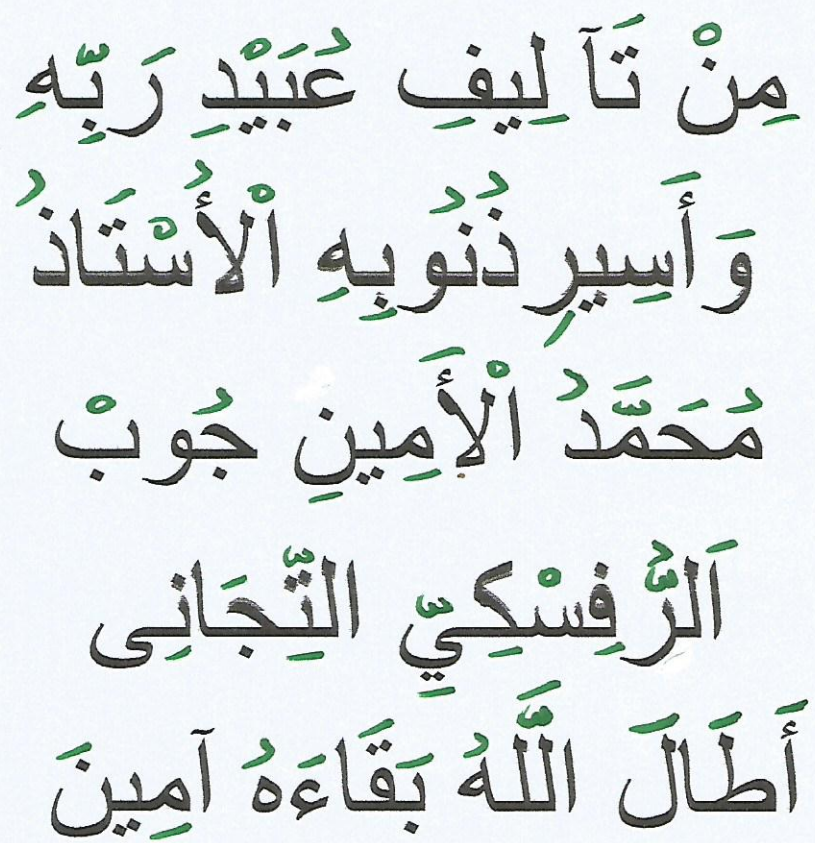 مِنْ تَآلِيفِ عُبَيْدِ رَبِّهِ
وَأَسِيرِ ذُنُوبِهِ الْأُسْتَاذُ
مُحَمَّدُ الْأَمِينِ جُوبْ
اَلرُّفِسْكِيِّ التِّجَانِى
أَطَالَ اللَّهُ بَقَاءَهُ آمِينَ